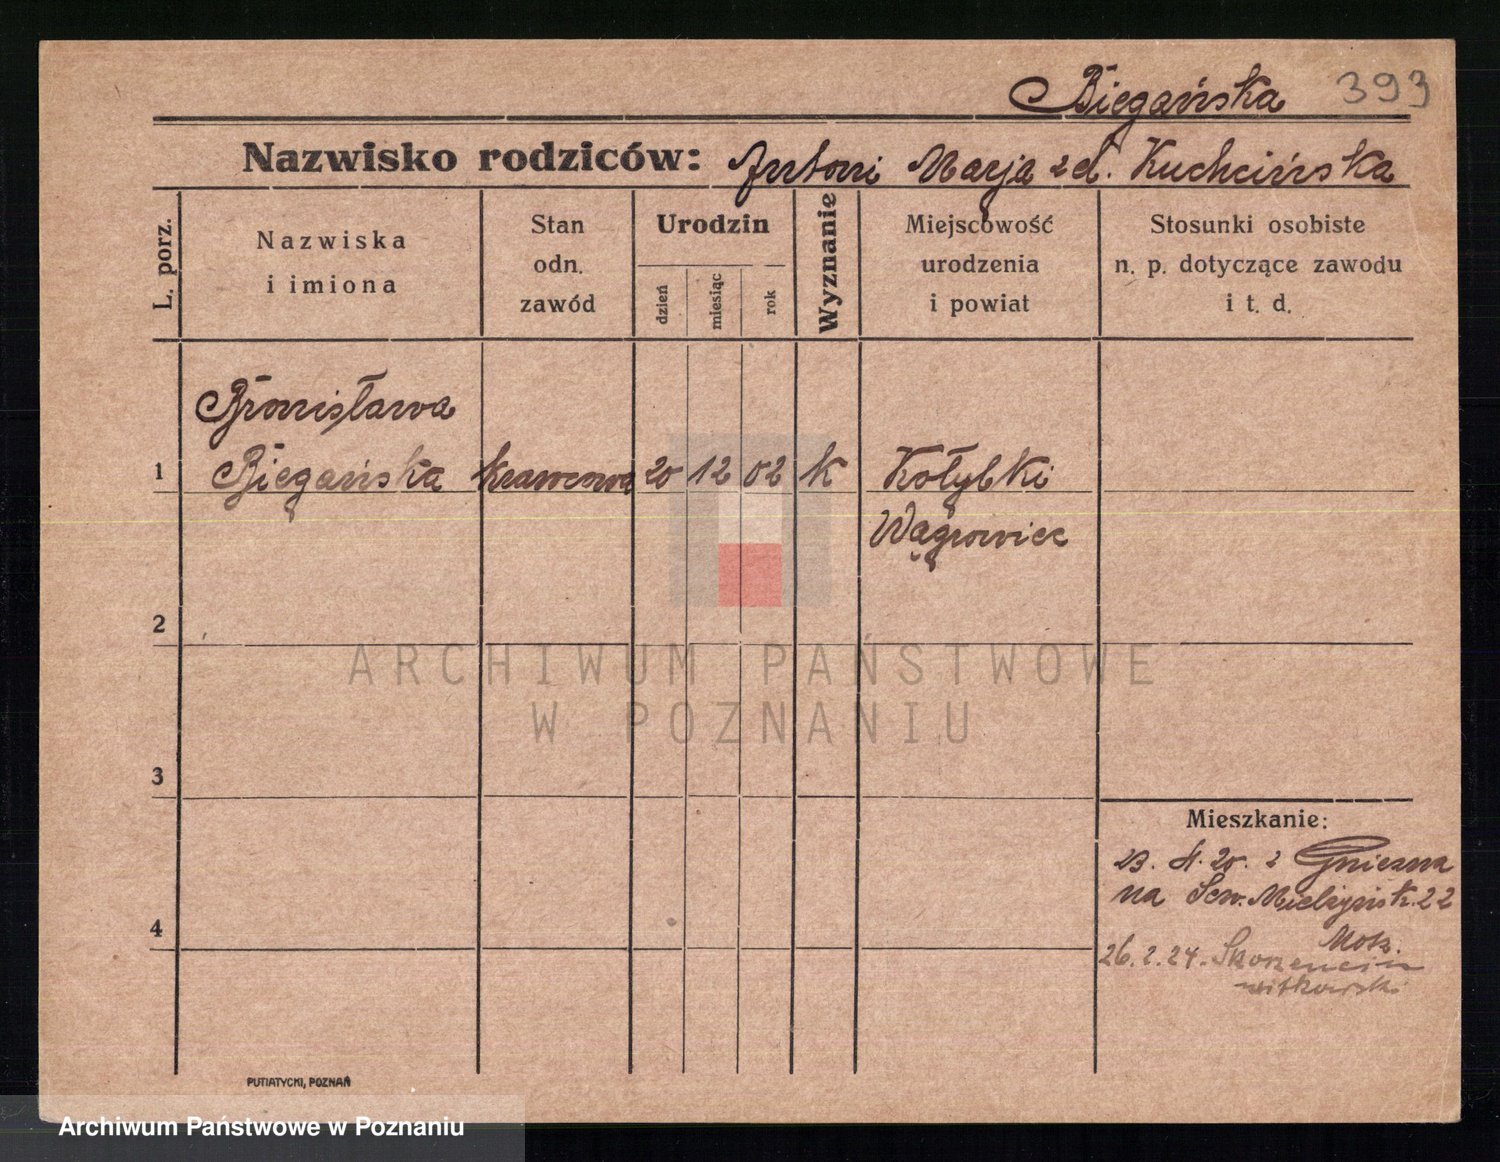 Biegańska 393
Nazwisko rodziców: Antoni Marja zd. Kuchcińska
L. porz.
Nazwiska
i imiona
Stan
odn.
zawód
Urodzin
dzień
miesiąc
rok
Wyznanie
Miejscowość
urodzenia
i powiat
Stosunki osobiste
n. p. dotyczące zawodu
i t. d.
Bronisława
1 Biegańska krawcowa 20 12 02 k Kołybki
Wągrowiec
2
3
4
Mieszkanie:
23. 4. 20. z Gniezna
na Sew. Mielżyńsk. 22
26. 2. 24. Skorzencin
witkowski
PUTIATYCKI, POZNAŃ
ARCHIWUM PAŃSTWOWE
W POZNANIU
Archiwum Państwowe w Poznaniu